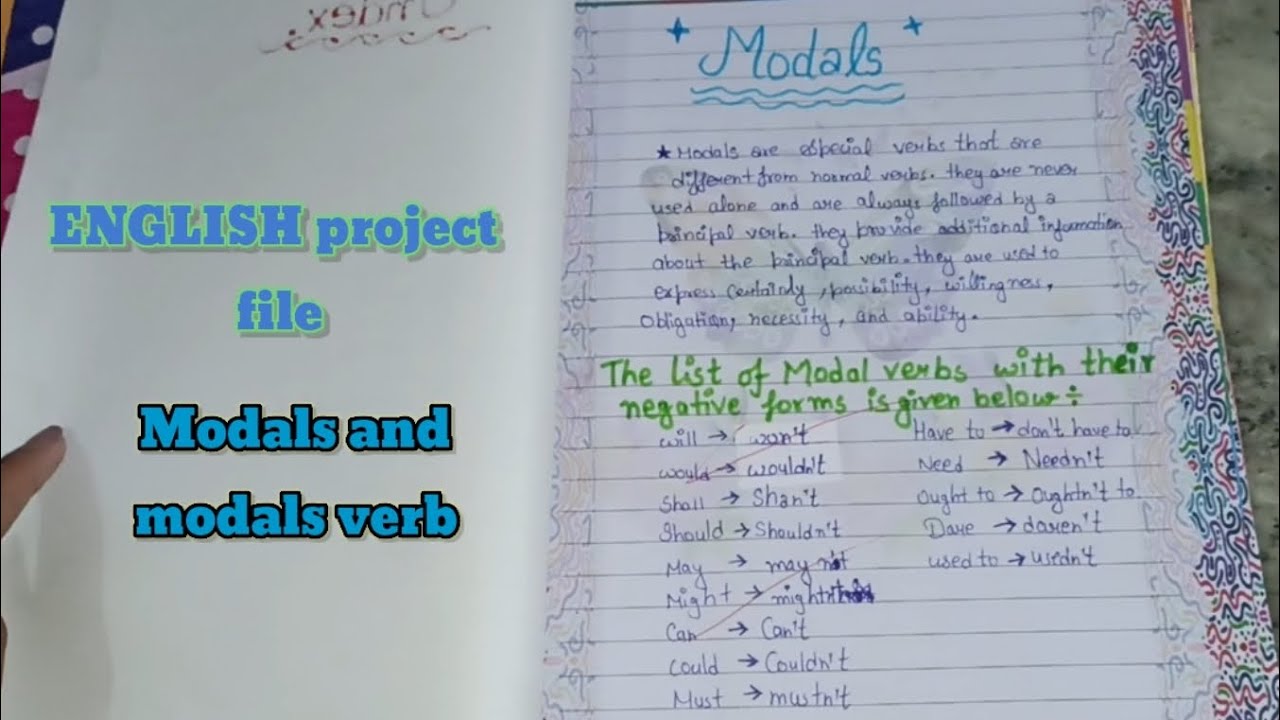 Index
ENGLISH project
file
Modals and
modals verb
Modals
★ Modals are especial verbs that are
different from normal verbs. they are never
used alone and are always followed by a
principal verb. they provide additional information
about the principal verb. they are used to
express certaindy, posibility, willingness,
Obligation, necessity, and ability.
The list of Modal verbs with their
negative forms is given below ÷
will → won't
would → wouldn't
Shall → Shan't
Should → Shouldn't
May → may n't
Might → mightn't
Can → Can't
Could → Couldn't
Must → mustn't
Have to → don't have to
Need → Needn't
ought to → oughtn't to
Dare → daren't
used to → usedn't